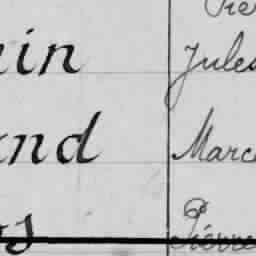 Pier
in Jules
and Marc
s Pierre